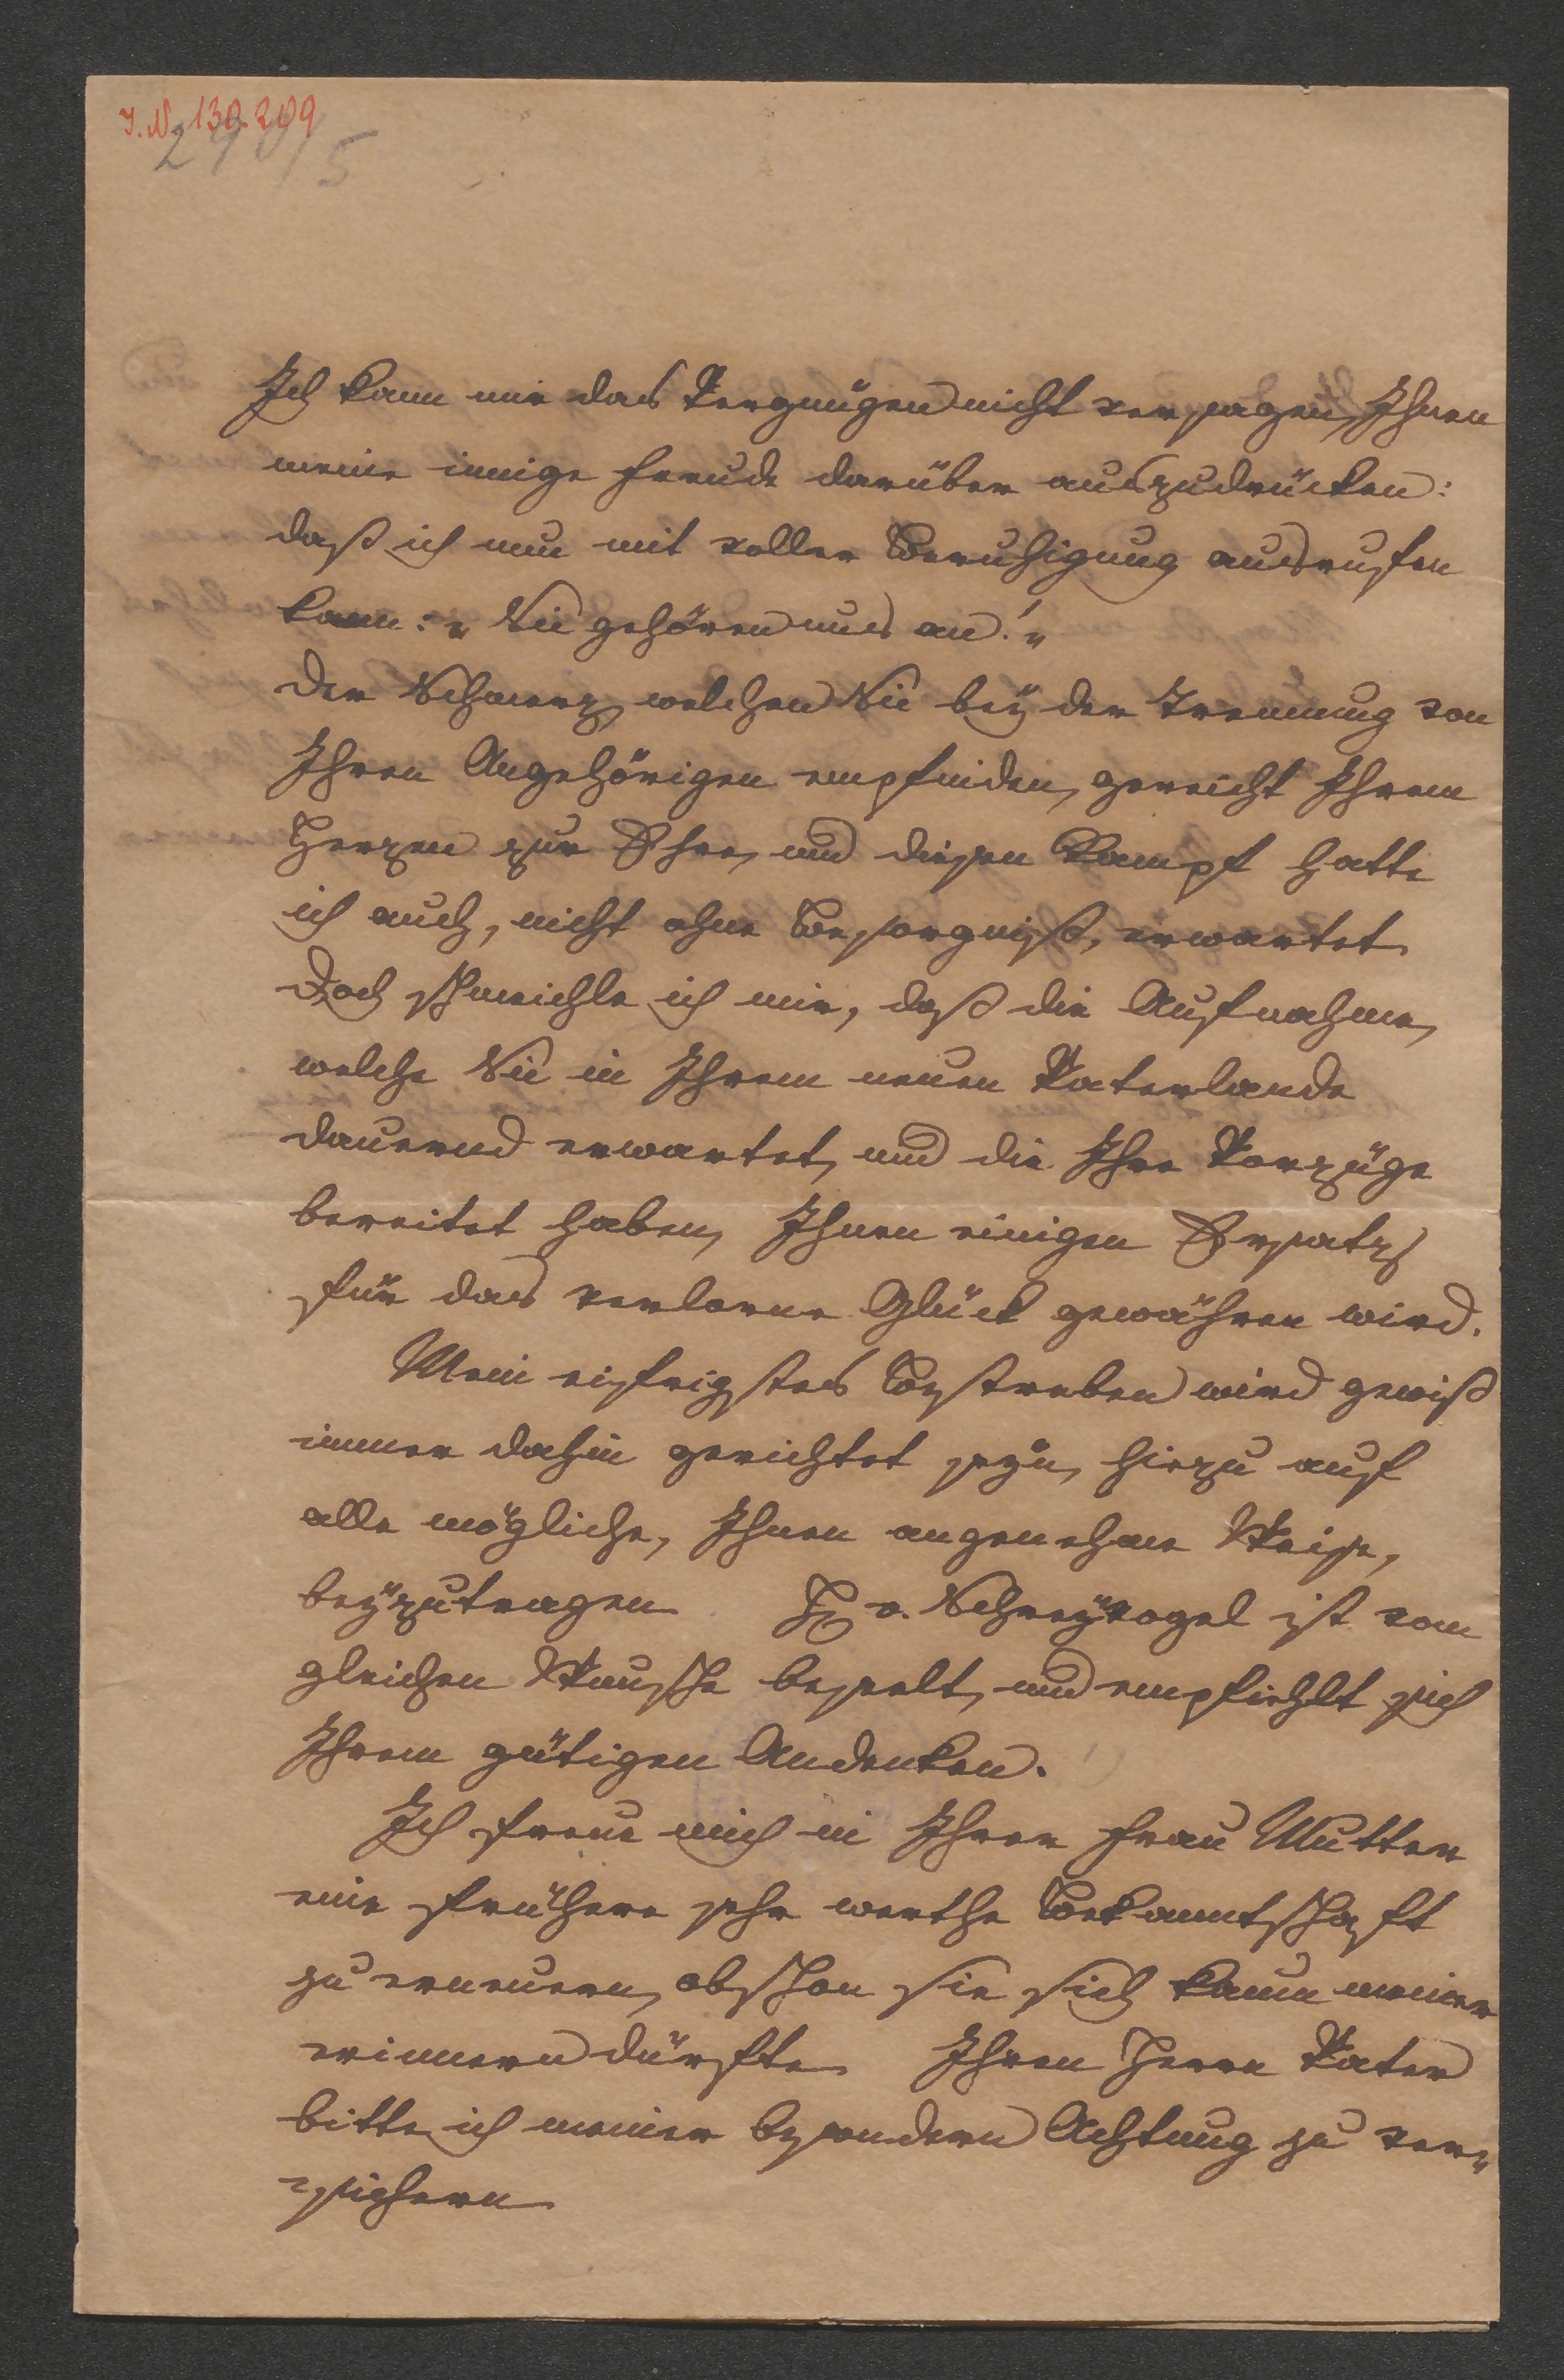 I.N. 130.209
Ich kann mir das Vergnügen nicht versagen, Ihnen
meine innige Freude darüber auszudrücken:
daß ich nun mit voller Beruhigung ausrufen
kann: „Sie gehören uns an!„
Der Schmerz, welchen Sie bey der Trennung von
Ihren Angehörigen empfinden, gereicht Ihrem
Herzen zur Ehre, und diesen Kampf hatte
ich auch, nicht ohne Besorgniß, erwartet.
Doch schmeichle ich mir, daß die Aufnahme,
welche Sie in Ihrem neuen Vaterlande
dauernd erwartet, und die Ihre Vorzüge
bereitet haben, Ihnen einigen Ersatz
für das verlorne Glück gewähren wird.
Mein eifrigstes Bestreben wird gewiß
immer dahin gerichtet seyn, hiezu auf
alle mögliche, Ihnen angenehme Weise,
beyzutragen. H. v. Schreyvogel ist vom
gleichen Wunsche beseelt, und empfiehlt sich
Ihrem gütigen Andenken.
Ich freue mich in Ihrer Frau Mutter
eine frühere sehr werthe Bekanntschaft
zu erneuern, obschon sie sich kaum meiner
erinnern dürfte. Ihren Herrn Vater
bitte ich meiner besondern Achtung zu ver-
sichern.